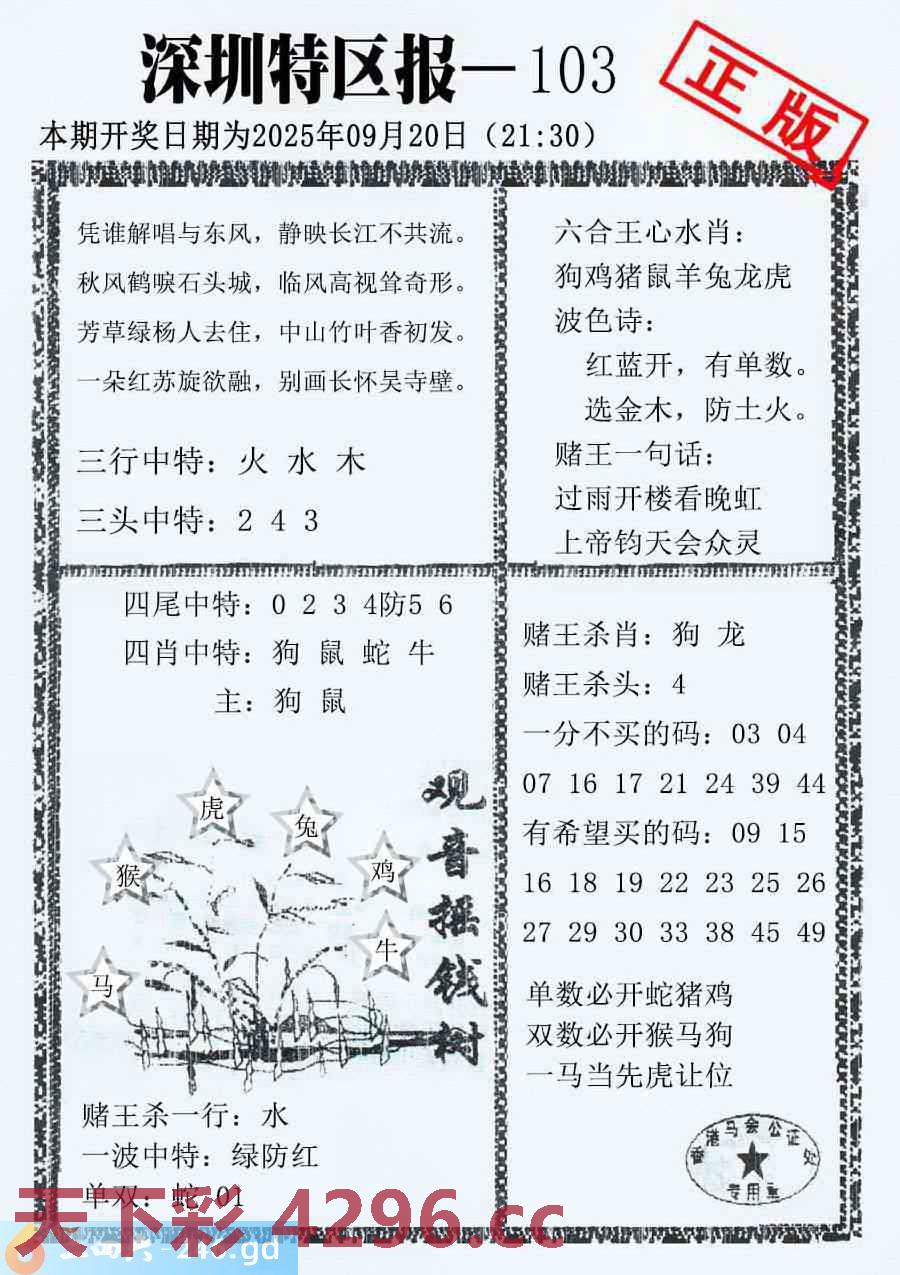 深圳特区报—103
正版
本期开奖日期为2025年09月20日（21:30）
凭谁解唱与东风，静映长江不共流。
秋风鹤唳石头城，临风高视耸奇形。
芳草绿杨人去住，中山竹叶香初发。
一朵红苏旋欲融，别画长怀吴寺壁。
三行中特：火 水 木
三头中特：2 4 3
六合王心水肖：
狗鸡猪鼠羊兔龙虎
波色诗：
红蓝开，有单数。
选金木，防土火。
赌王一句话：
过雨开楼看晚虹
上帝钧天会众灵
四尾中特：0 2 3 4防5 6
四肖中特：狗 鼠 蛇 牛
主：狗 鼠
观音摇钱树
虎
兔
猴
鸡
牛
马
赌王杀一行：水
一波中特：绿防红
单双：蛇 01
赌王杀肖：狗 龙
赌王杀头：4
一分不买的码：03 04
07 16 17 21 24 39 44
有希望买的码：09 15
16 18 19 22 23 25 26
27 29 30 33 38 45 49
单数必开蛇猪鸡
双数必开猴马狗
一马当先虎让位
香港马会公证处
专用章
天下彩 4296.cc